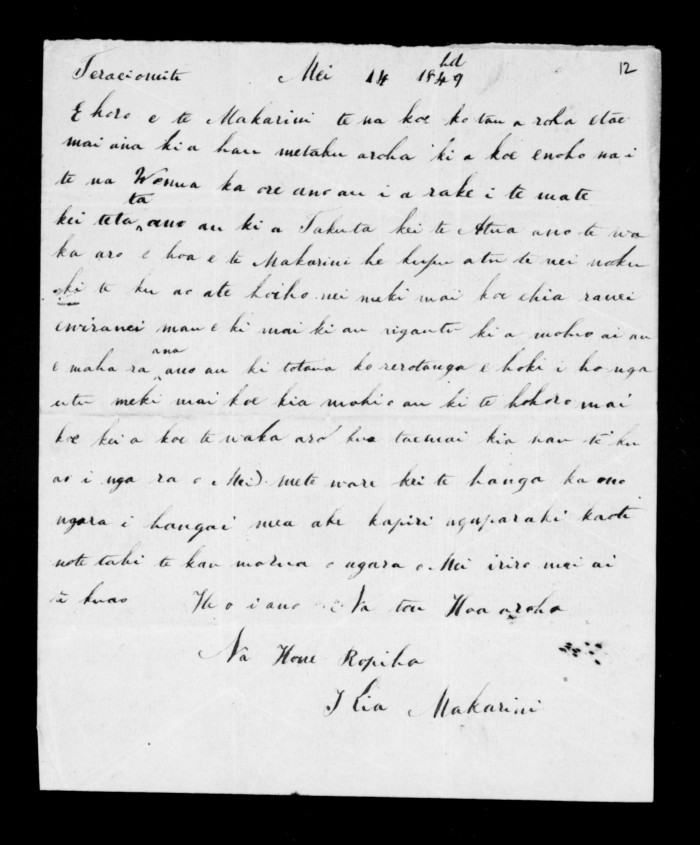 12
Teracioniti Mei 14 1849
E horo e te Makarini te na koe ko tau a roha etae
mai ana ki a hau metaku aroha ki a koe enoho na i
te na Wenua ka ore ano au i a rake i te mate
kei teta ta ano au ki a Takuta kei te Atua ano te wa
ka aro e hoa e te Makarini he kupu atu te nei noku
ki te ku ao ate hoiho nei meki mai koe ehia ranei
ewiranei mau e ki mai ki au rigantu ki a mohio ai au
e maha ra ana ano au ki totana ko rerotanga e hoki i ho nga
utu meki mai koe kia mohio au ki te hohoro mai
koe kei a koe te waka aro hua taemai kia nau te ku
ao i nga ra o Mei mete ware kei te hanga ka ono
ngara i hangai mea ake kapiri nguparaki kaoti
note tahi te kau marua o ngara o Mei iriro mai ai
te kuao Hu o i ano Na tou Hoa aroha
Na Hone Ropiha
I Kia Makarini